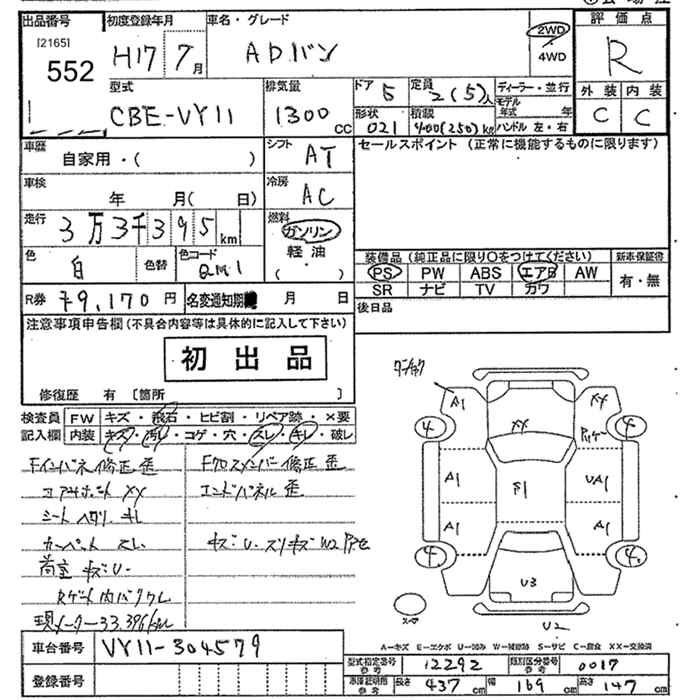 出品番号 初度登録年月 車名・グレード 評価点
[2165] H17 7月 ADバン 2WD R
552 4WD
型式 排気量 ドア 5 定員 2(5)人 ディーラー・並行 外装 内装
CBE-VY11 1300cc 形状 021 積載 400(250)kg モデル年式 年 C C
ハンドル 左・右
車歴 自家用・( ) シフト AT セールスポイント (正常に機能するものに限ります)
車検 年 月( 日) 冷房 AC
走行 3万3千395km 燃料 ガソリン
軽油
( )
色 白 色替 色コード QM1 装備品 (純正品に限り○をつけてください) 新車保証書
PS PW ABS エアB AW 有・無
SR ナビ TV カワ
R券 ¥9,170円 名変通知期限 月 日 後日品
注意事項申告欄(不具合内容等は具体的に記入して下さい)
初出品
修復歴 有 〔箇所 〕
検査員 FW キズ・飛石・ヒビ割・リペア跡・×要
記入欄 内装 キズ・汚レ・コゲ・穴・スレ・キレ・破レ
Fインパネ修正 歪 Fクロスメンバー修正 歪
コアサポート XX エンドパネル 歪
シートヘタリ キレ
カーペット スレ キズ・U・スリキズ W2
荷室 キズ・U・
現メーター33,396km
A1 XX
4 XX 4
A1 F1 UA1
A1 A1
4 4
U3
スペア
U2
A-キズ E-エクボ U-凹み W-補修跡 S-サビ C-腐食 XX-交換済
車台番号 VY11-304579
型式指定番号 12292 類別区分番号 0017
登録番号 車庫証明用参考 長さ 437cm 幅 169cm 高さ 147cm